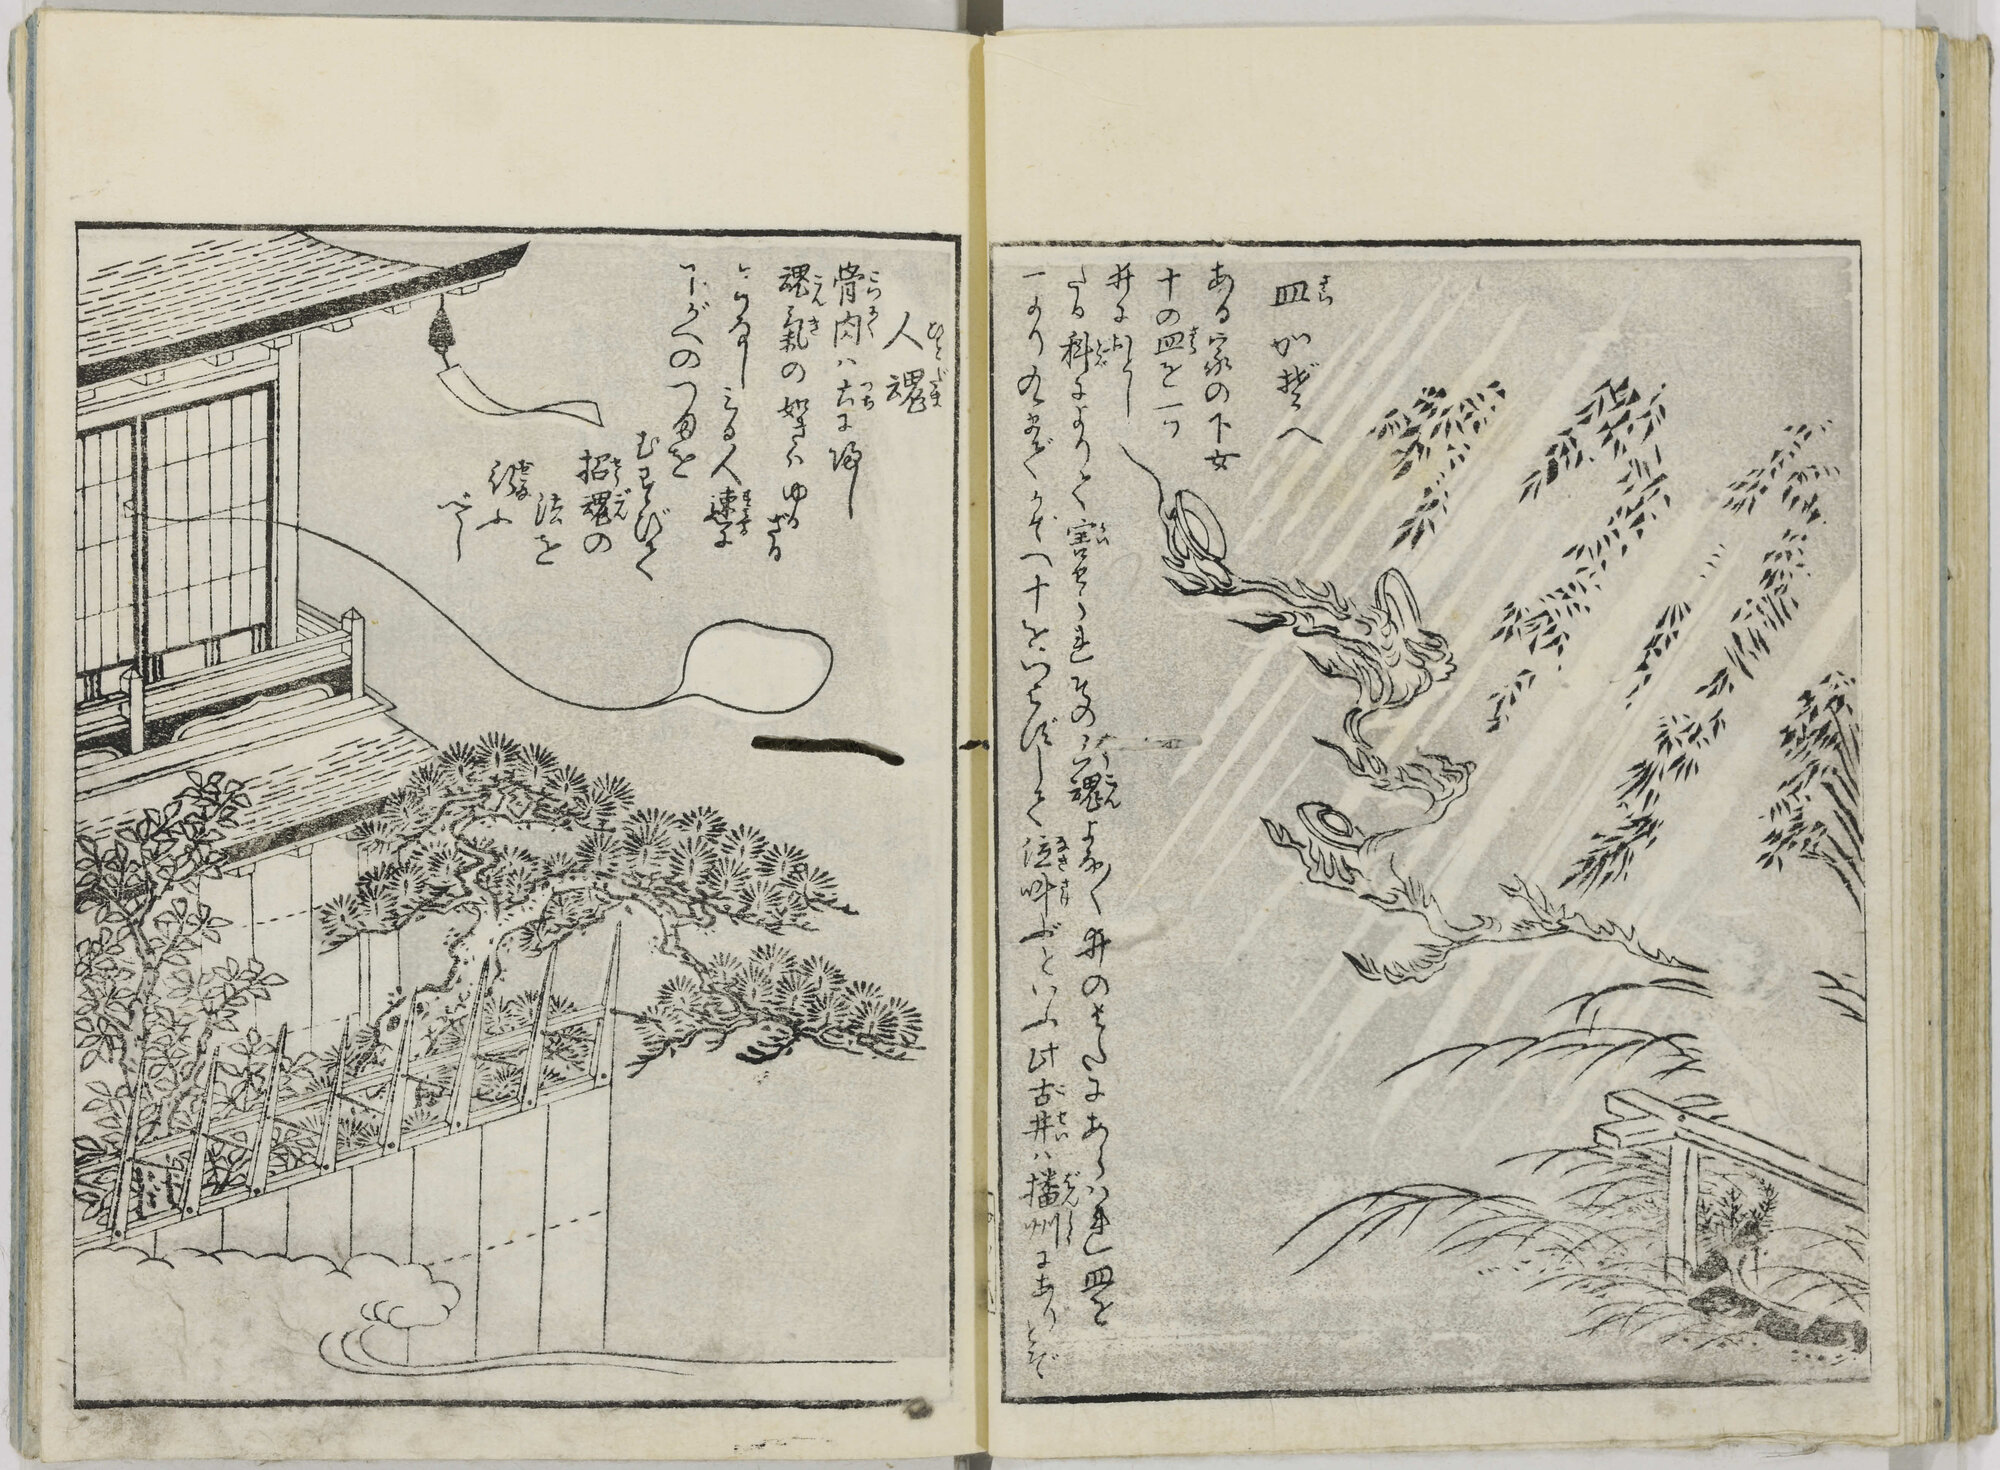 皿かぞへ
ある家の下女
十の皿を一つ
井におとし
たる科によりて害せられ其の亡魂よな〱井のはたにあらはれ皿を
一より九までかぞへ十をいはずして泣叫ぶといふ此古井は播州にありとぞ
人魂
骨肉は土に帰し
魂気の如きはゆかざる
ことなし みる人速に
下がへのつまを
むすびて
招魂の
法を
行ふ
べし